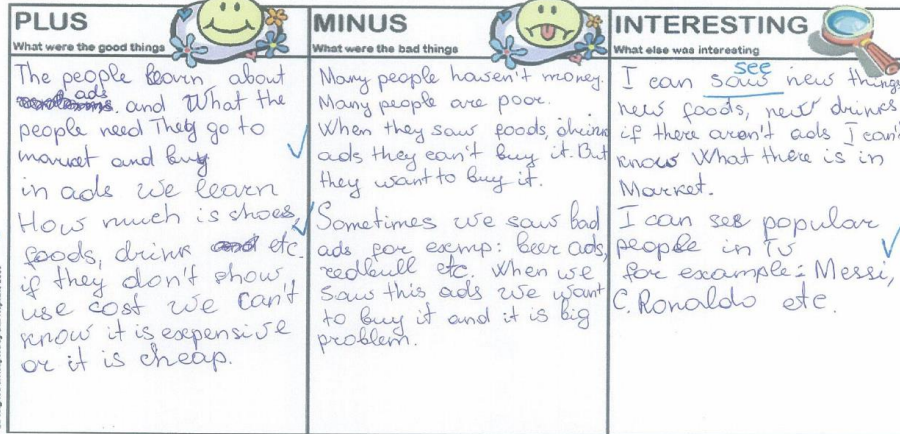 PLUS
What were the good things
The people learn about
ads
and What the
people need They go to
market and buy
in ads we learn
How much is shoes,
foods, drink etc.
if they don't show
use cost we can't
know it is expensive
or it is cheap.
MINUS
What were the bad things
Many people haven't money.
Many people are poor.
When they saw foods, drink
ads they can't buy it. But
they want to buy it.
Sometimes we saw bad
ads for exemp: beer ads,
redbull etc. When we
saw this ads we want
to buy it and it is big
problem.
INTERESTING
What else was interesting
see
I can saw new things
new foods, new drinks
if there aren't ads I can't
know What there is in
Market.
I can see popular
people in TV
for example: Messi,
C. Ronaldo etc.